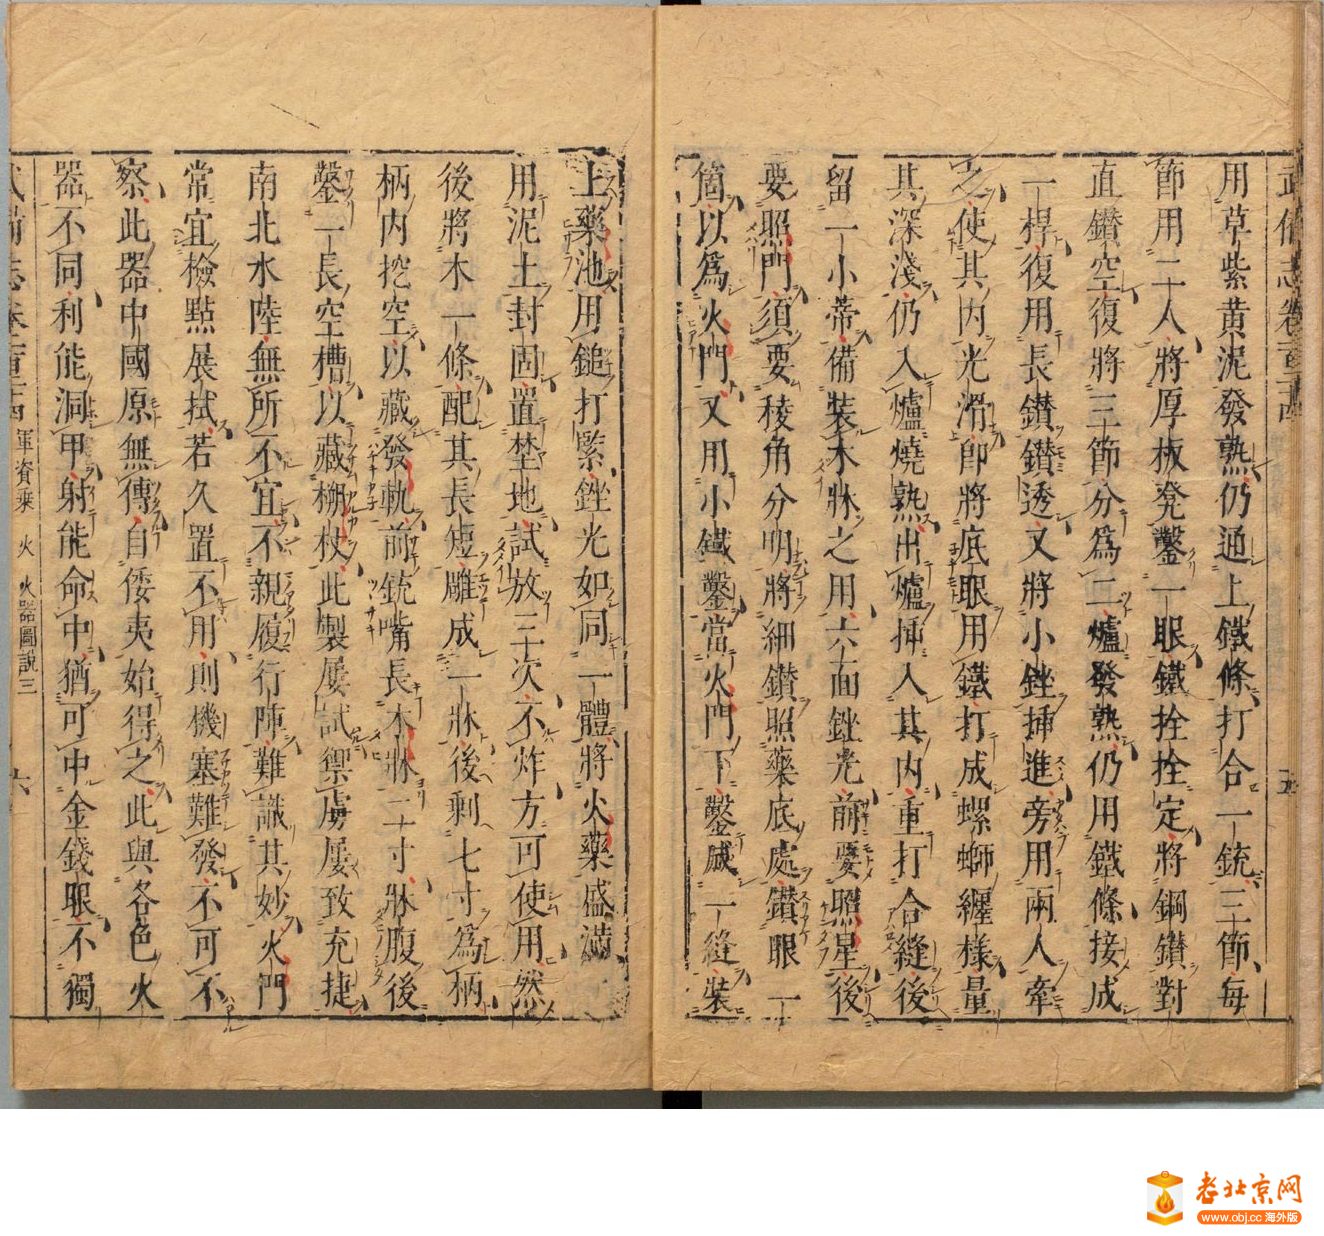 武備志卷一百二十四
五
用草紫黃泥發熟仍通上鐵條打合一銃三節每
節用二人將厚板凳鑿一眼鐵拴拴定將鋼鑚對
直鑚空復將三節分爲二爐發熟仍用鐵條接成
一桿復用長鑚鑚透又將小銼揷進旁用兩人牽
之使其内光滑卽將底眼用鐵打成螺螄纏樣量
其深淺仍入爐燒熟出爐揷入其内重打合縫後
留一小蒂備裝木牀之用六面銼光前要照星後
要照門須要稜角分明將細鑚照藥底處鑚眼一
箇以爲火門又用小鐵鑿當火門下鑿成一縫裝
上藥池用鎚打緊銼光如同一體將火藥盛滿
用泥土封固置埜地試放三次不炸方可使用然
後將木一條配其長短雕成一牀後剩七寸爲柄
柄内挖空以藏發軌前銃嘴長木牀二寸牀腹後
鑿一長空槽以藏棚杖此製屢試禦虜屢致充捷
南北水陸無所不宜不親履行陣難識其妙火門
常宜檢點展拭若久置不用則機塞難發不可不
察此器中國原無傳自倭夷始得之此與各色火
器不同利能洞甲射能命中猶可中金錢眼不獨
武備志卷一百二十四 軍資乘 火 火器圖說三
六
老北京网
www.obj.cc 海外版